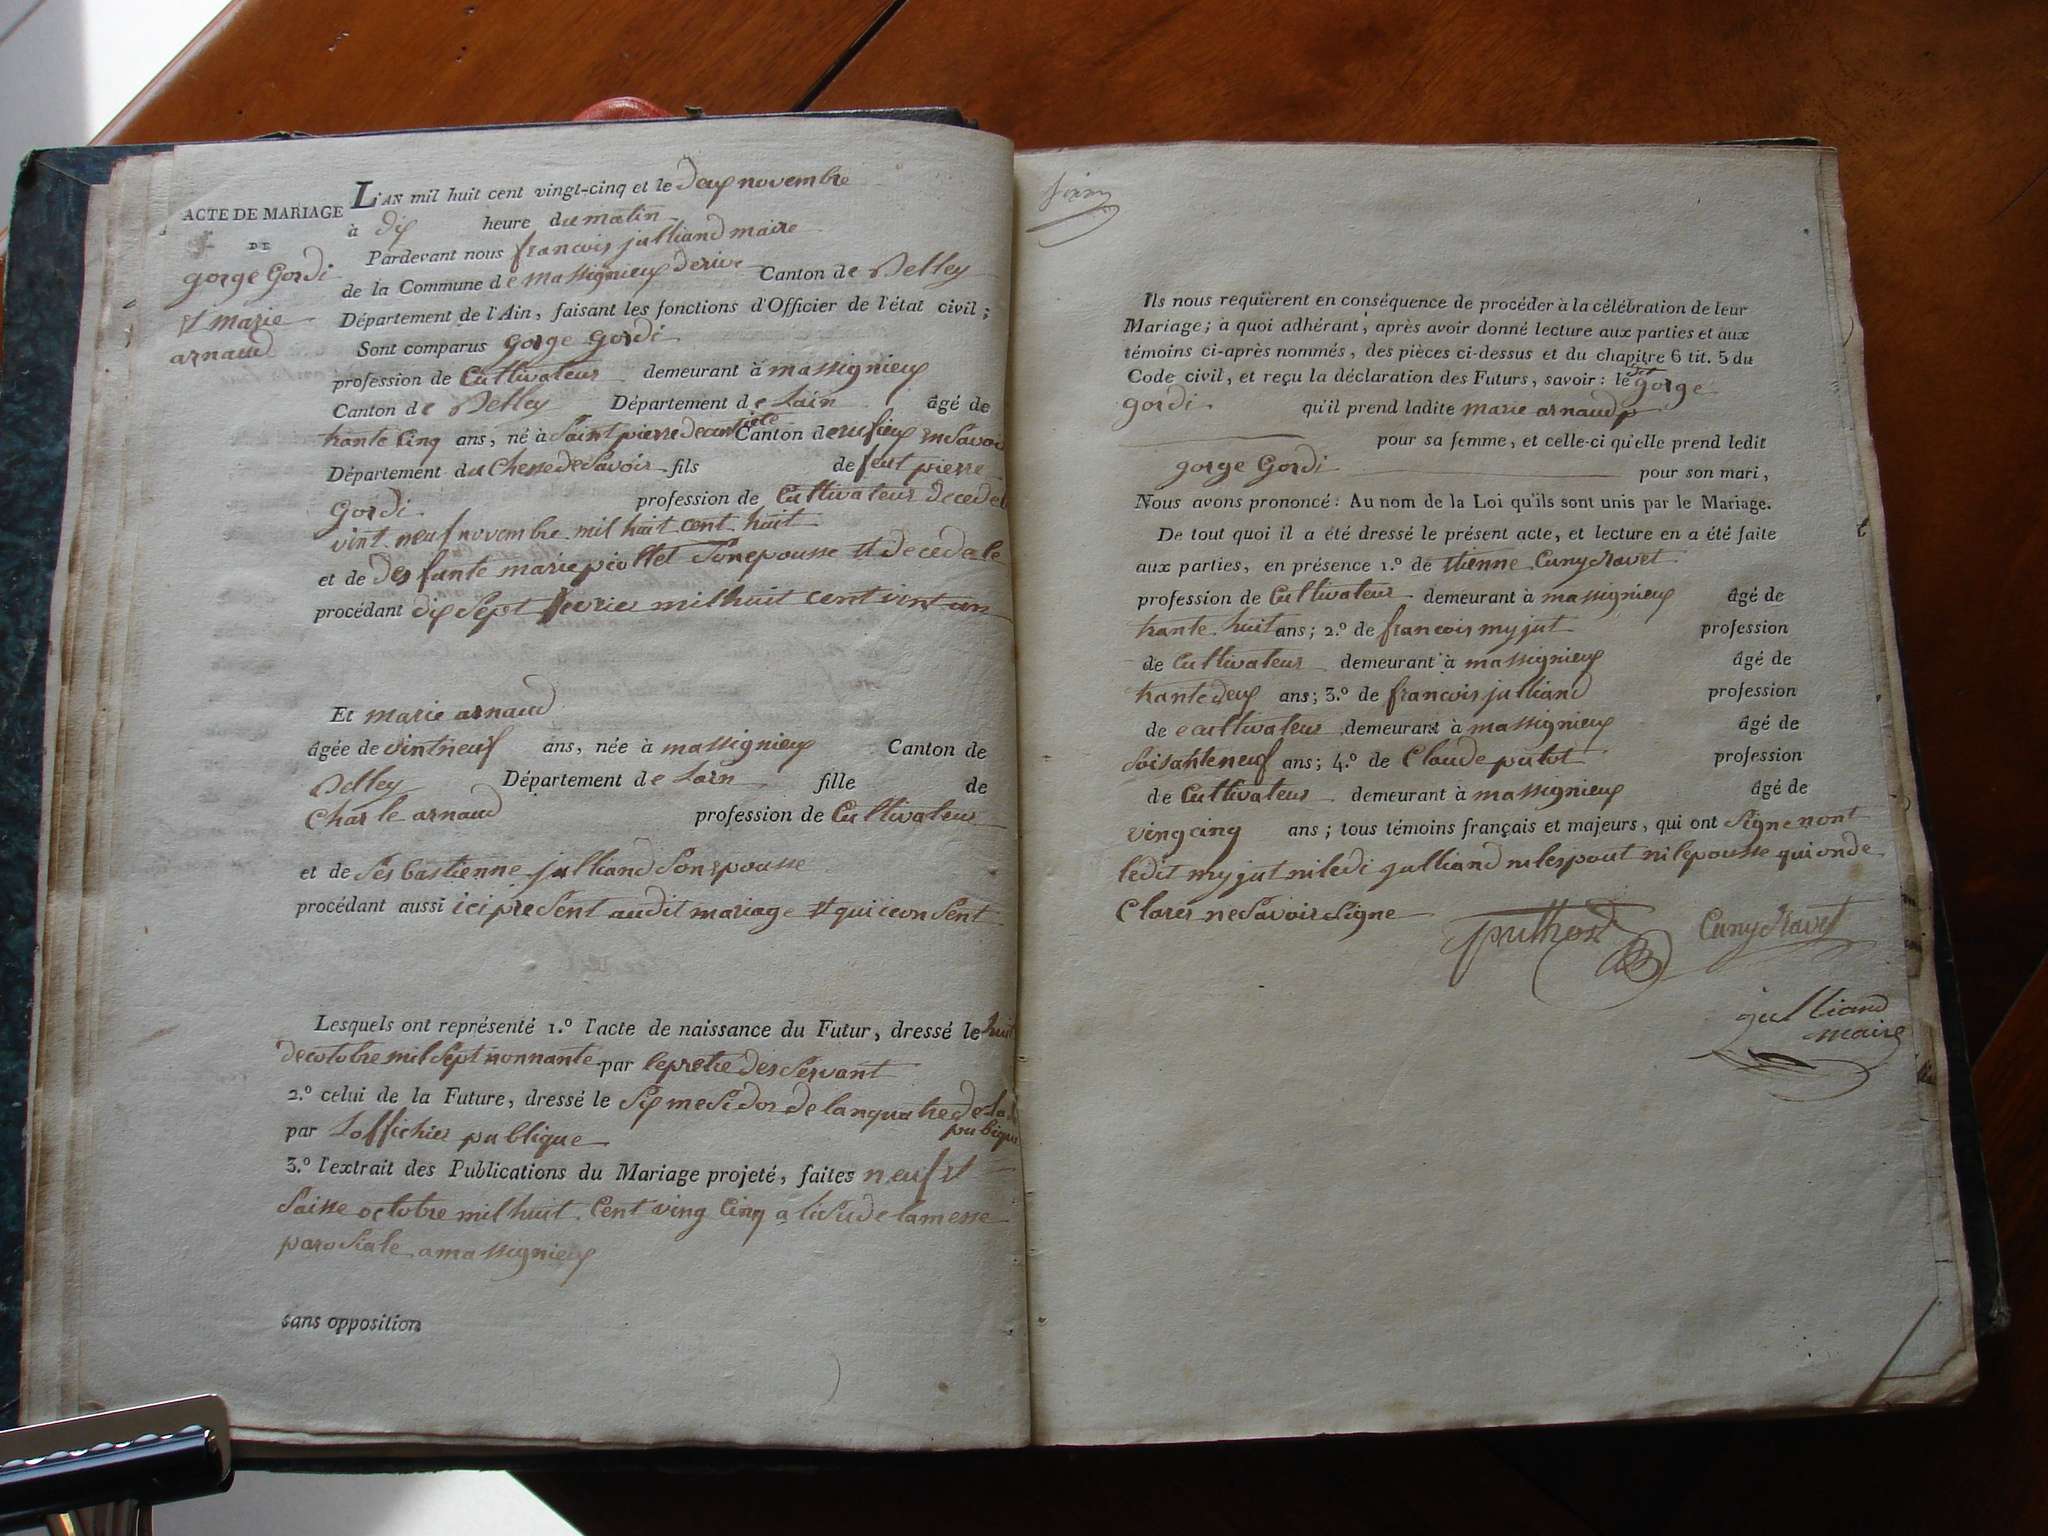 ACTE DE MARIAGE
DE
gorge Gordi
et marie
arnaud
L'AN mil huit cent vingt-cinq et le deux novembre
à dix heure du matin
Pardevant nous francois julliand maire
de la Commune de massignieux derive Canton de Belley
Département de l'Ain, faisant les fonctions d'Officier de l'état civil ;
Sont comparus gorge gordi
profession de Cultivateur demeurant à massignieux
Canton de Belley Département de Lain âgé de
trante cinq ans, né à Saint pierre de Canton de rufieux en Savoi
Département du de Savoir fils de feut pierre
Gordi profession de Cultivateur decedet
vint neuf novembre mil huit cent huit
et de desfunte marie piollet Son epousse et decedele
procédant dix Sept fevrier mil huit cent vint un
Et marie arnaud
âgée de vintneuf ans, née à massignieux Canton de
Belley Département de Lain fille de
Charle arnaud profession de Cultivateur
et de Ses bastienne julliand Son epousse
procédant aussi ici preSent audit mariage et qui icon Sent
Lesquels ont représenté 1.º l'acte de naissance du Futur, dressé le huit
de octobre mil Sept nonnante par lepretre desServant
2.º celui de la Future, dressé le Six meSidor de lan quatre de La
pubique
par Loffichier publique
3.º l'extrait des Publications du Mariage projeté, faites neuf et
Saisse octobre mil huit Cent ving Cinq a liSu de lamesse
paroSiale a massignieux
sans opposition
Ils nous requièrent en conséquence de procéder à la célébration de leur
Mariage ; à quoi adhérant, après avoir donné lecture aux parties et aux
témoins ci-après nommés, des pièces ci-dessus et du chapitre 6 tit. 5 du
Code civil, et reçu la déclaration des Futurs, savoir : le dit gorge
gordi qu'il prend ladite marie arnaud
pour sa femme, et celle-ci qu'elle prend ledit
gorge Gordi pour son mari,
Nous avons prononcé : Au nom de la Loi qu'ils sont unis par le Mariage.
De tout quoi il a été dressé le présent acte, et lecture en a été faite
aux parties, en présence 1.º de etienne Cuny Ravet
profession de Cultivateur demeurant à massignieux âgé de
trante huit ans ; 2.º de francois myjut profession
de Cultivateur demeurant à massignieux âgé de
trante deux ans ; 3.º de francois julliand profession
de cultivateur demeurant à massignieux âgé de
Soisanteneuf ans ; 4.º de Claude putot profession
de Cultivateur demeurant à massignieux âgé de
vingcinq ans ; tous témoins français et majeurs, qui ont Signe nont
ledit myjut niledi julliand nilespout nilepousse qui onde
Clarer neSavoir Signe
puthod Cuny Ravet
julliand
maire